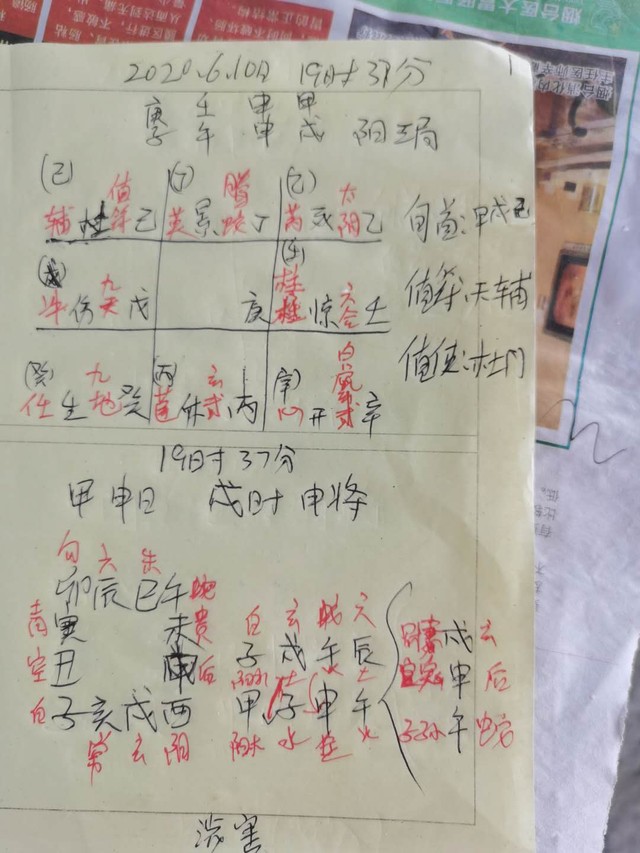 2020.6.10日 19时37分
庚 壬 甲 甲
子 午 申 戌 阳三局
(己) 值符 (丁) 腾蛇 (乙) 太阳
辅 杜 己 英 景 丁 芮 死 乙
旬首:甲戌己
九天 (壬) 六合
冲 伤 戊 庚 柱 惊 壬
值符:天辅
(癸) 九地 (丙) 玄武 (辛) 白虎
任 生 癸 蓬 休 丙 心 开 辛
值使:杜门
19时37分
甲申日 戌时 申将
勾 六 朱
卯 辰 巳 午 蛇
青 寅 未 贵
空 丑 申 后
白 子 亥 戌 酉
常 玄 阴
白 玄 蛇 六
子 戌 午 辰
阳水 土 火 土
甲 子 申 午
阳木 水 金 火
妻 戌 玄
官鬼 申 后
子孙 午 蛇
涉害